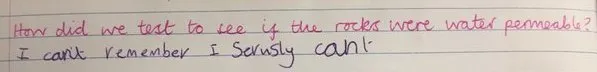 How did we test to see if the rocks were water permeable?
I can't remember I Serusly can't